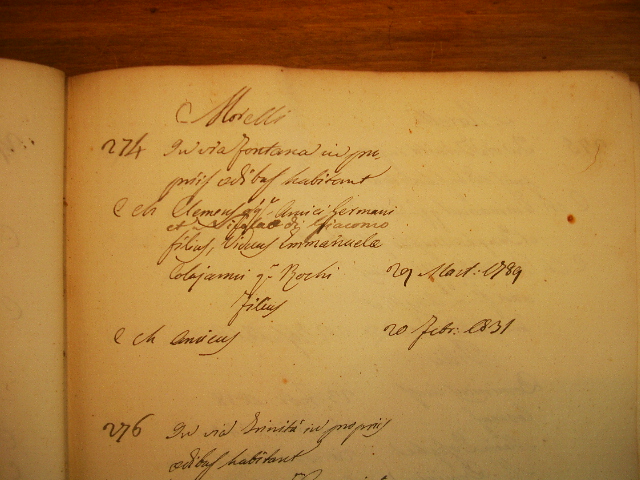 Morelli
274 In via Fontana in pro,
priis ædibus habitant
C ch Clemens q.m Amici Germani
et di Giacomo
filius, viduus Emmanuelæ
Colajanni q.m Rochi 29 Mart: 1789
Filius
C ch Amicus 20 Febr: 1831
276 In via Trinità in propriis
ædibus habitant